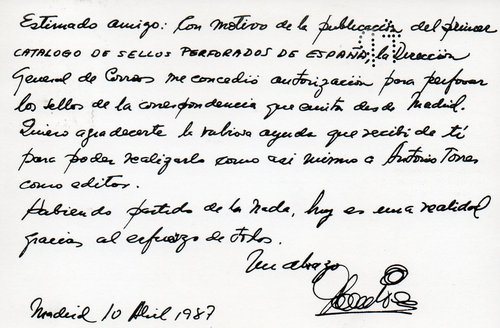 Estimado amigo: Con motivo de la publicación del primer
CATALOGO DE SELLOS PERFORADOS DE ESPAÑA, la Dirección
General de Correos me concedió autorización para perforar
los sellos de la correspondencia que emita desde Madrid.
Quiero agradecerte la valiosa ayuda que recibí de tí
para poder realizarlo como asi mismo a Antonio Torres
como editor.
Habiendo partido de la Nada, hoy es una realidad
gracias al esfuerzo de todos.
Un abrazo
Madrid 10 Abril 1987